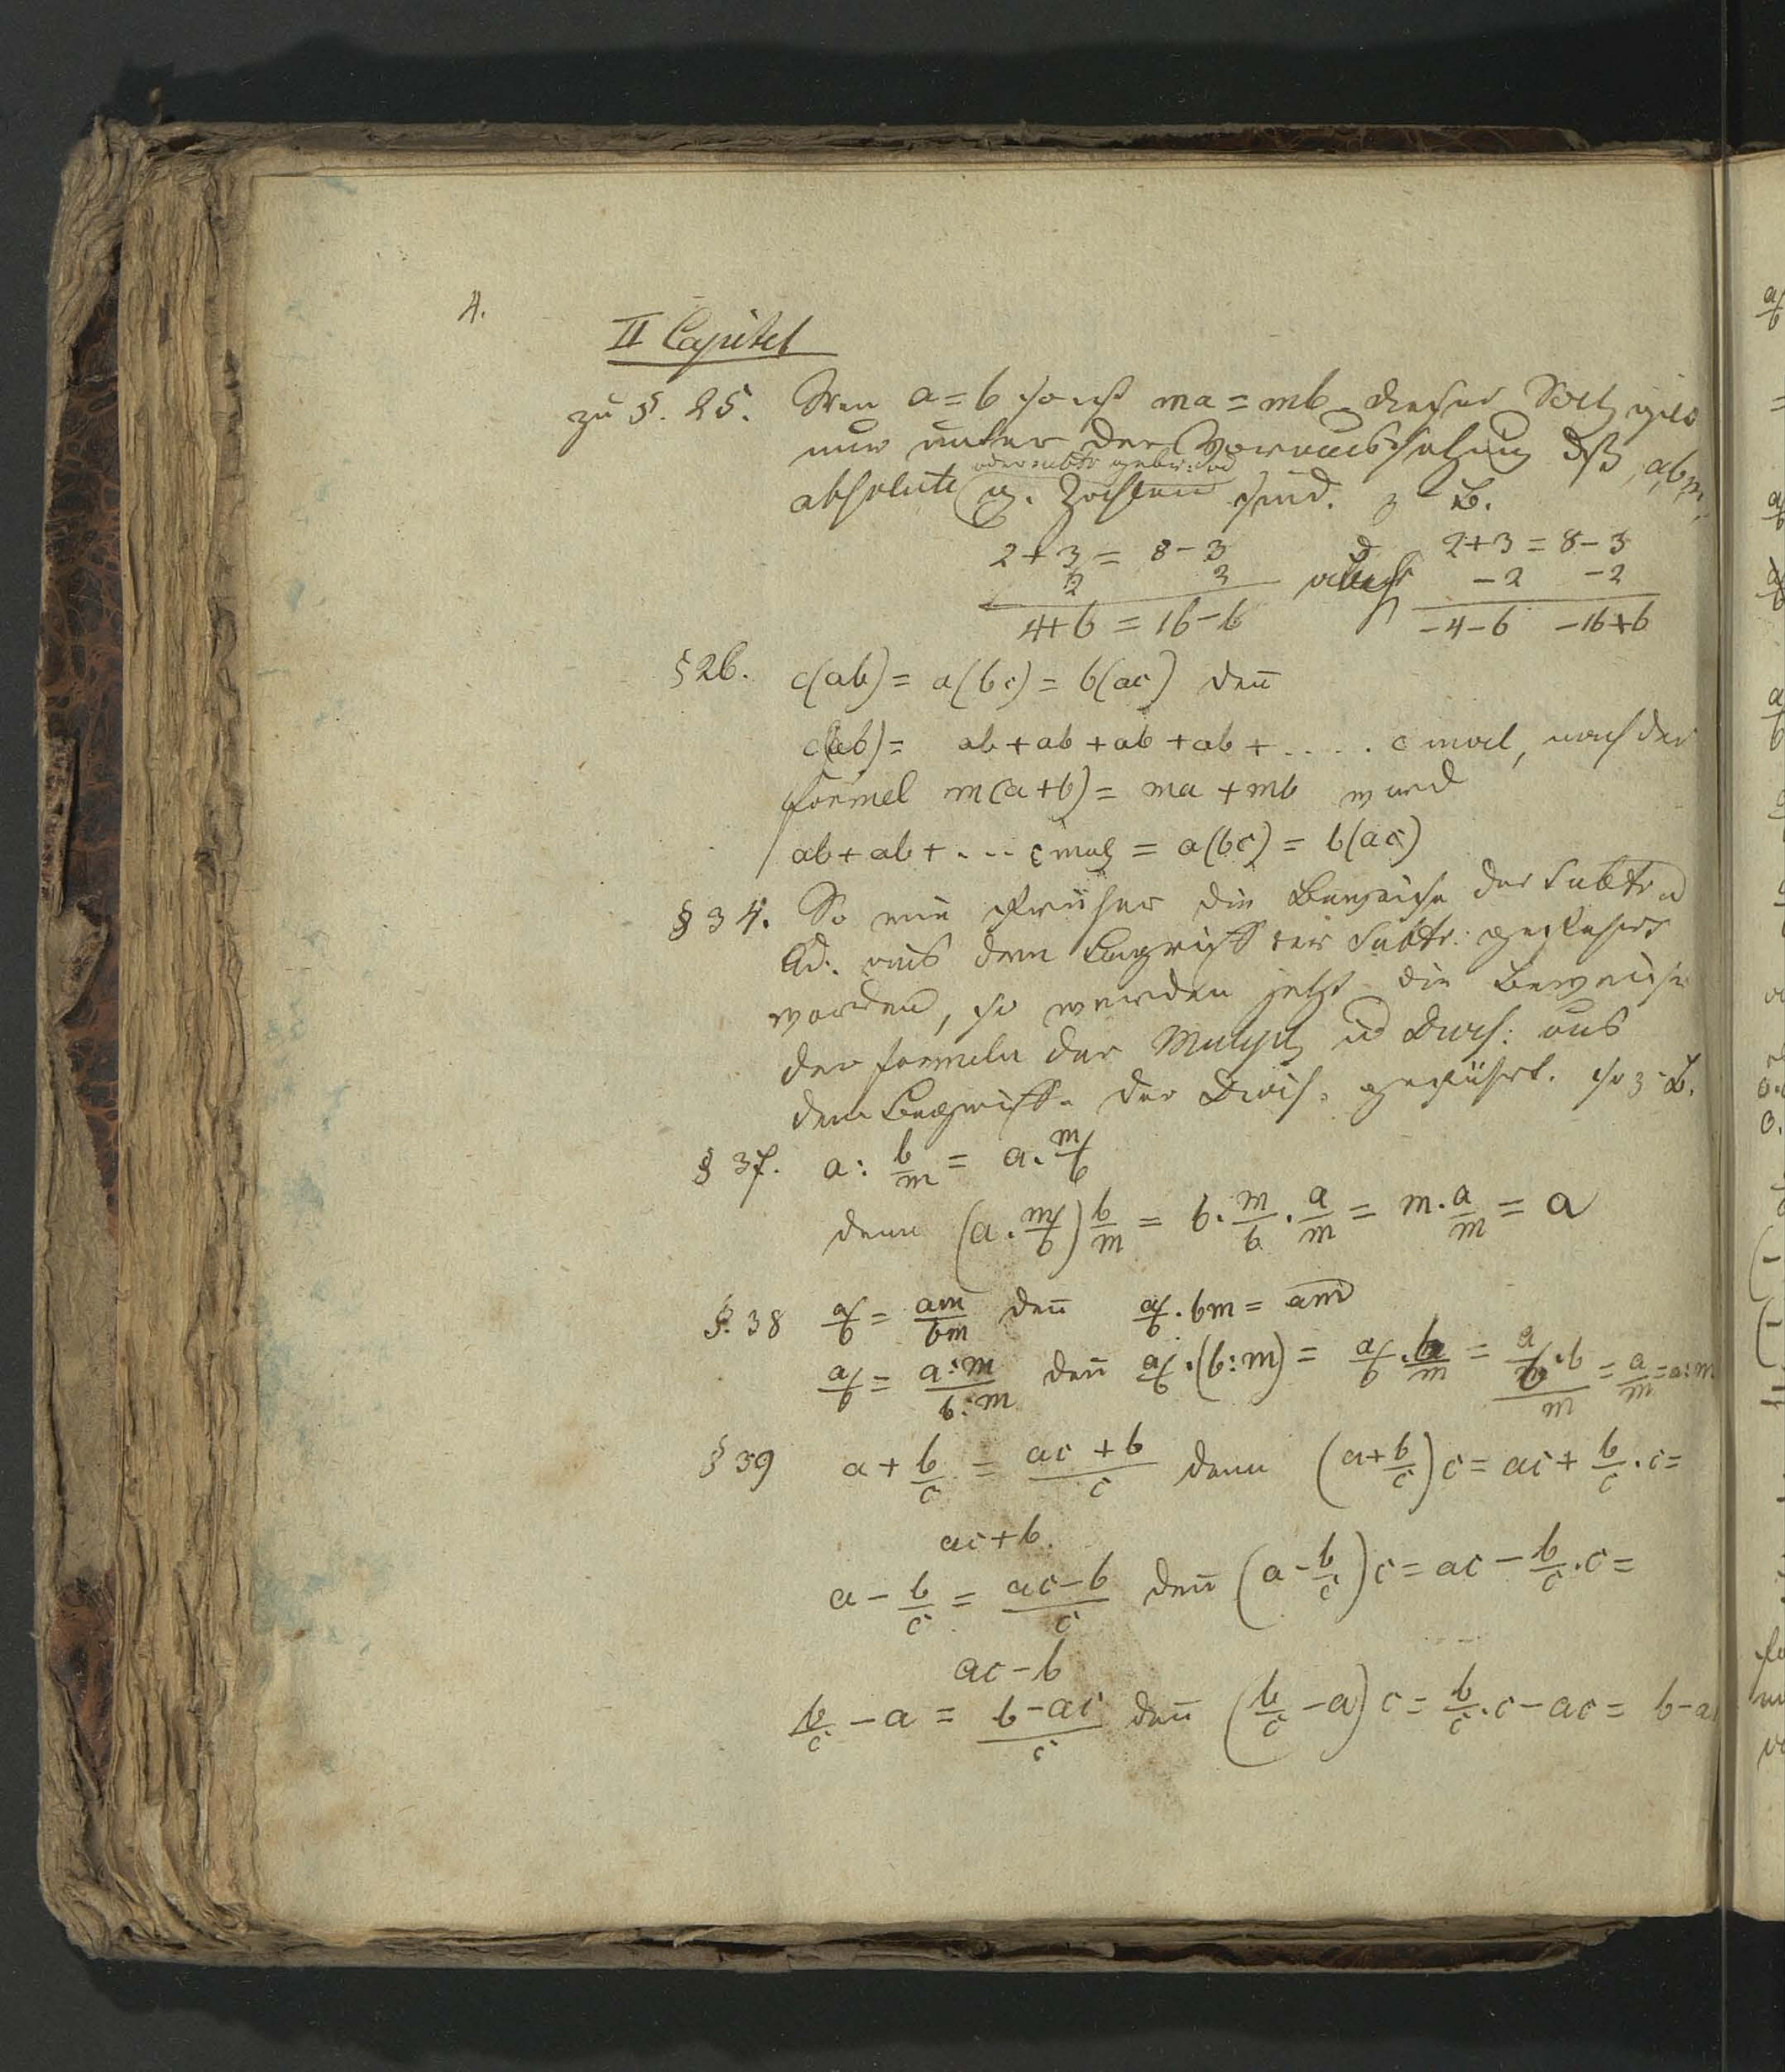 4.
II Capitel
zu §. 25. Wen a = b so ist ma = mb. Dieser Satz gilt
nur unter der Voraussetzung dß a, b, m,
oder subtr: gebr:
absolute g. Zahlen sind. z. B.
2+3 = 8-3 2+3 = 8-3
2 2 -2 -2
4+6 = 16-6 -4-6 -16+6
§ 26. c(ab) = a(bc) = b(ac) deñ
c(ab) = ab + ab + ab + ab + ..... c mal, nach der
formel m(a+b) = ma + mb wird
ab + ab + ... c mal = a(bc) = b(ac)
§ 34. So wie früher die Beweise der Subtr u
Ad: aus dem Begriff der Subtr: geführt
worden, so werden jetzt die Beweise
der formeln der Multipl u Divis: aus
dem Begriffe der Divis: geführt. so z. B.
§ 37. a : b/m = a . m/b
denn (a . m/b) b/m = b . m/b . a/m = m . a/m = a
§. 38 a/b = am/bm deñ a/b . bm = am
a/b = a:m/b:m deñ a/b . (b:m) = a/b . b/m = a/b . b/m = a/m = a:m
§ 39 a + b/c = ac + b/c denn (a + b/c) c = ac + b/c . c =
ac + b.
a - b/c = ac - b/c deñ (a - b/c) c = ac - b/c . c =
ac - b
b/c - a = b - ac/c deñ (b/c - a) c = b/c . c - ac = b - a